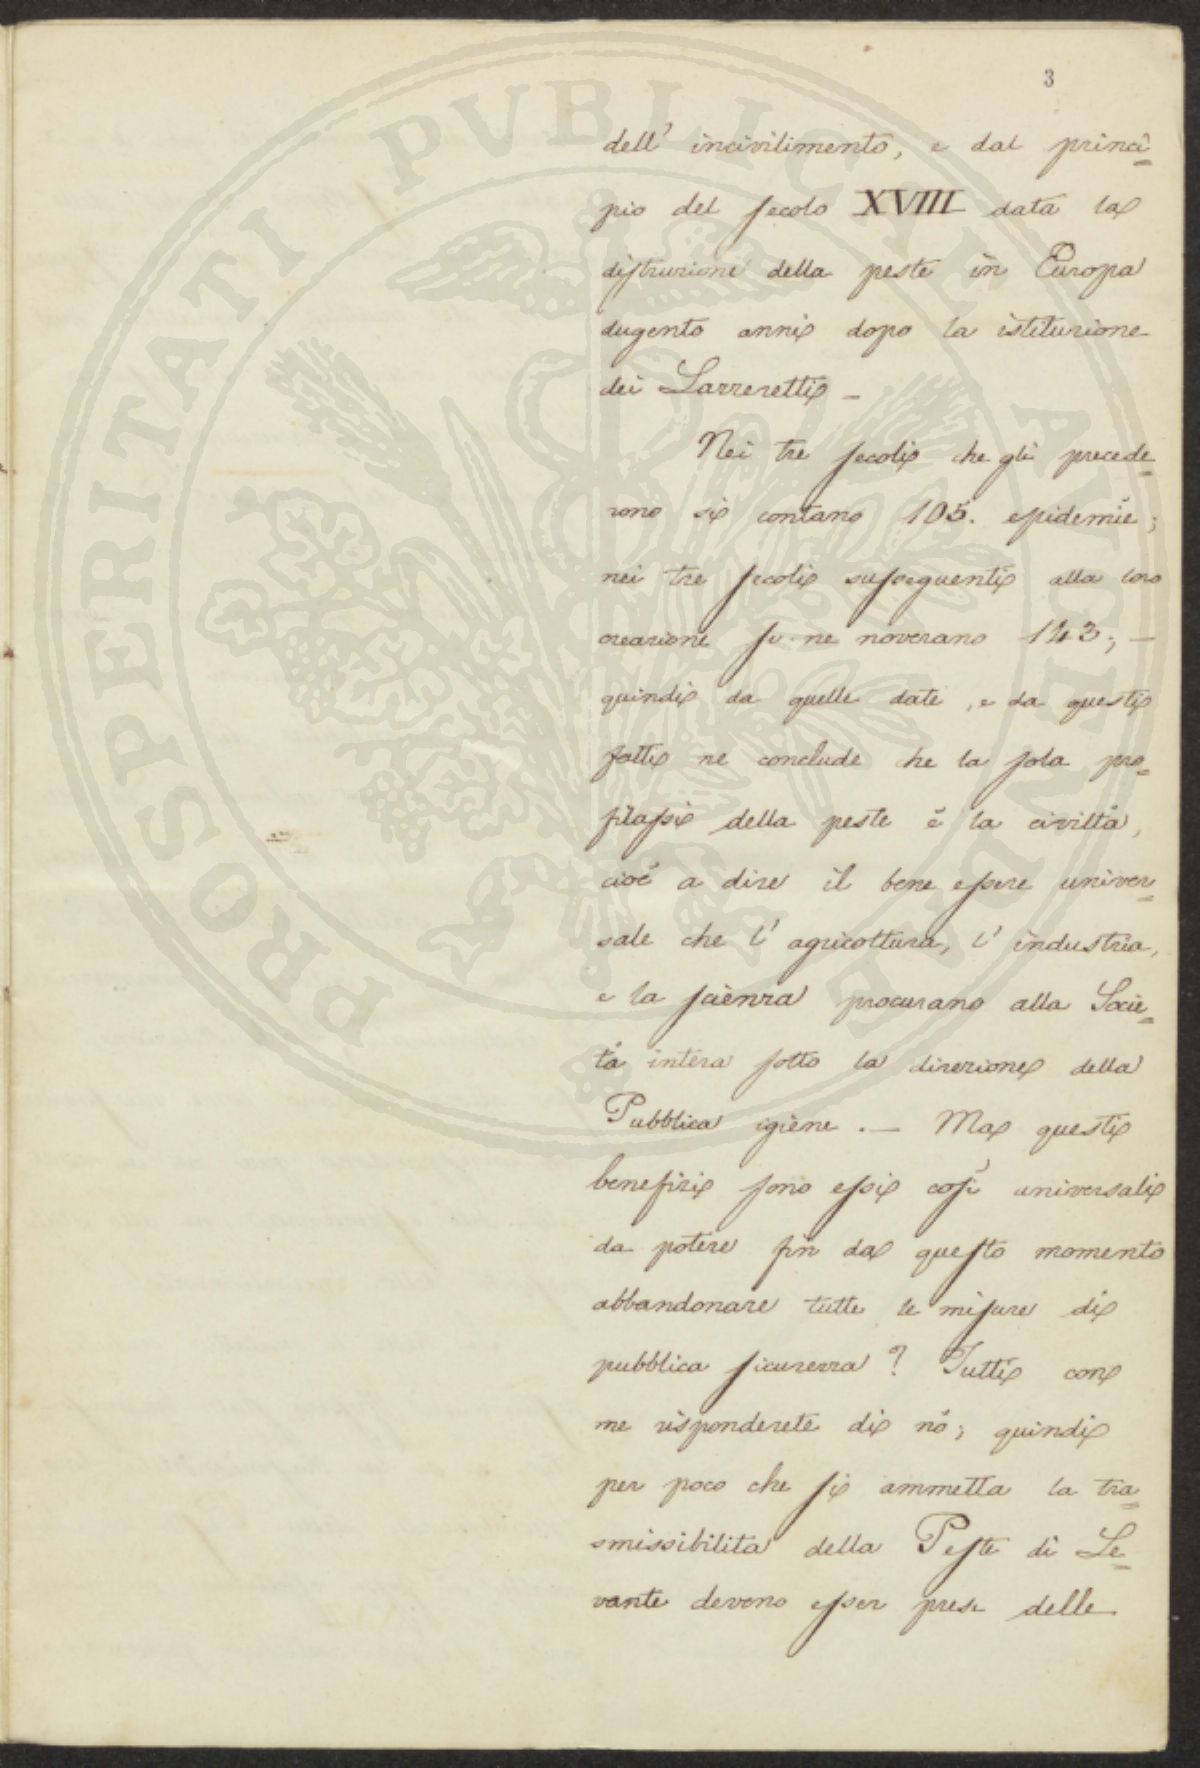 3
dell' incivilimento, e dal princi=
pio del secolo XVIII data la
distruzione della peste in Europa
dugento anni dopo la istituzione
dei Lazzeretti –
Nei tre secoli che gli precede=
rono si contano 105. epidemie;
nei tre secoli susseguenti alla loro
creazione se ne noverano 143; –
quindi da quelle date, e da questi
fatti ne conclude che la sola pro=
filassi della peste è la civiltà,
cioè a dire il bene essere univer=
sale che l' agricoltura, l' industria,
e la scienza procurano alla Socie=
tà intera sotto la direzione della
Pubblica igiene. — Ma questi
benefizi sono essi così universali
da potere fin da questo momento
abbandonare tutte le misure di
pubblica sicurezza? Tutti con
me risponderete di nò; quindi
per poco che si ammetta la tra=
smissibilita della Peste di Le=
vante devono esser prese delle
PROSPERITATI PUBLICAE AUGENDAE